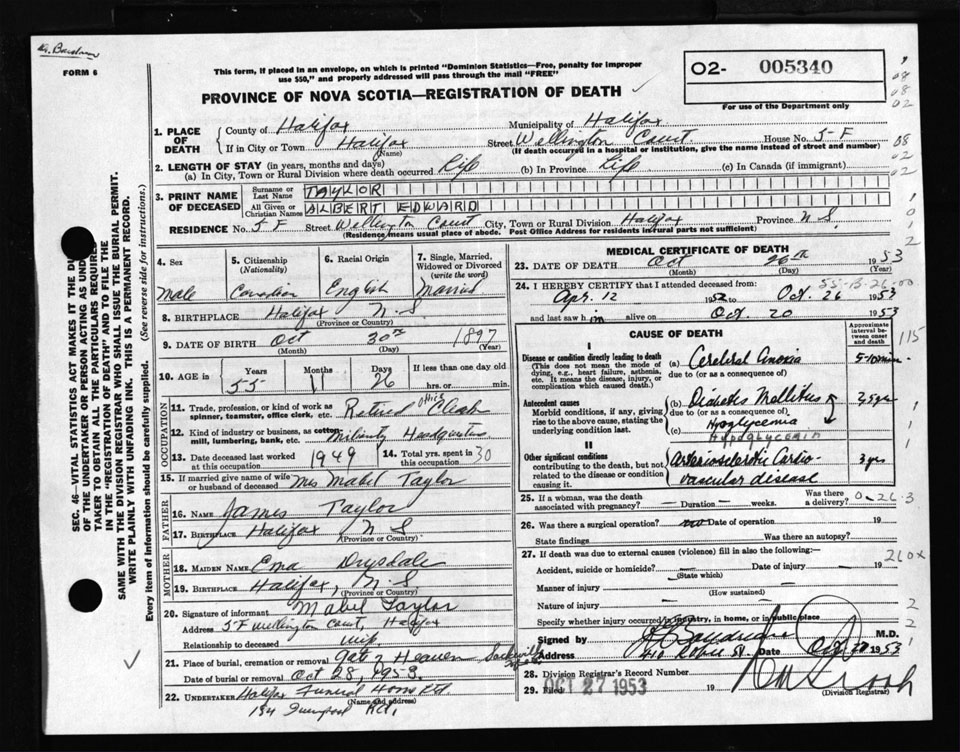 FORM 6
This form, if placed in an envelope, on which is printed "Dominion Statistics—Free, penalty for improper
use $50," and properly addressed will pass through the mail "FREE"
PROVINCE OF NOVA SCOTIA—REGISTRATION OF DEATH
O2- 005340
For use of the Department only
SEC. 46—VITAL STATISTICS ACT MAKES IT THE
OF THE UNDERTAKER OR PERSON ACTING AS
TAKER TO OBTAIN ALL THE PARTICULARS
IN THE "REGISTRATION OF DEATH" AND TO FILE THE
SAME WITH THE DIVISION REGISTRAR WHO SHALL ISSUE THE BURIAL PERMIT.
WRITE PLAINLY WITH UNFADING INK. THIS IS A PERMANENT RECORD.
Every item of information should be carefully supplied. (See reverse side for instructions.)
1. PLACE OF DEATH
County of Halifax Municipality of Halifax
If in City or Town Halifax (Name) Street Wellington Court House No. 5-F
(If death occurred in a hospital or institution, give the name instead of street and number)
2. LENGTH OF STAY (in years, months and days)
(a) In City, Town or Rural Division where death occurred Life (b) In Province Life (c) In Canada (if immigrant)
3. PRINT NAME OF DECEASED
Surname or Last Name TAYLOR
All Given or Christian Names ALBERT EDWARD
RESIDENCE No. 5 F Street Wellington Court City, Town or Rural Division Halifax Province N.S.
(Residence means usual place of abode. Post Office Address for residents in rural parts not sufficient)
4. Sex Male
5. Citizenship (Nationality) Canadian
6. Racial Origin English
7. Single, Married, Widowed or Divorced (write the word) Married
8. BIRTHPLACE Halifax N.S. (Province or Country)
9. DATE OF BIRTH Oct (Month) 30th (Day) 1897 (Year)
10. AGE in Years 55 Months 11 Days 26 If less than one day old hrs. or min.
OCCUPATION
11. Trade, profession, or kind of work as spinner, teamster, office clerk, etc. Retired office Clerk
12. Kind of industry or business, as cotton mill, lumbering, bank, etc. Headquarters
13. Date deceased last worked at this occupation 1949
14. Total yrs. spent in this occupation 30
15. If married give name of wife or husband of deceased Mrs Mabel Taylor
FATHER
16. NAME James Taylor
17. BIRTHPLACE Halifax N S (Province or Country)
MOTHER
18. MAIDEN NAME Ema Drysdale
19. BIRTHPLACE Halifax, N.S (Province or Country)
20. Signature of informant Mabel Taylor
Address 5 F Wellington Court, Halifax
Relationship to deceased wife
21. Place of burial, cremation or removal Gate of Heaven Sackville
Date of burial or removal Oct 28, 1953.
22. UNDERTAKER Halifax Funeral Home Ltd.
(Name and address)
194
MEDICAL CERTIFICATE OF DEATH
23. DATE OF DEATH Oct (Month) 26th (Day) 1953 (Year)
24. I HEREBY CERTIFY that I attended deceased from:
Apr. 12 1952 to Oct. 26 1953
and last saw him alive on Oct. 20 1953
CAUSE OF DEATH
Approximate interval between onset and death
I
Disease or condition directly leading to death
(This does not mean the mode of dying, e.g., heart failure, asthenia, etc. It means the disease, injury, or complication which caused death.)
(a) Cerebral Anoxia
due to (or as a consequence of)
Antecedent causes
Morbid conditions, if any, giving rise to the above cause, stating the underlying condition last.
(b) Diabetes Mellitus
due to (or as a consequence of)
(c) Hypoglycemia
HYPOGLYCEMIA
II
Other significant conditions
contributing to the death, but not related to the disease or condition causing it.
Arteriosclerotic Cardio-
vascular disease 3 yrs
25. If a woman, was the death associated with pregnancy? — Duration — weeks. Was there a delivery?
26. Was there a surgical operation? no Date of operation 19
State findings Was there an autopsy?
27. If death was due to external causes (violence) fill in also the following:—
Accident, suicide or homicide? (State which) Date of injury 19
Manner of injury (How sustained)
Nature of injury
Specify whether injury occurred in industry, in home, or in public place
Signed by M.D.
Address Robie St. Date Oct 27 1953
28. Division Registrar's Record Number
29. Filed OCT 27 1953 19 (Division Registrar)
115
260x